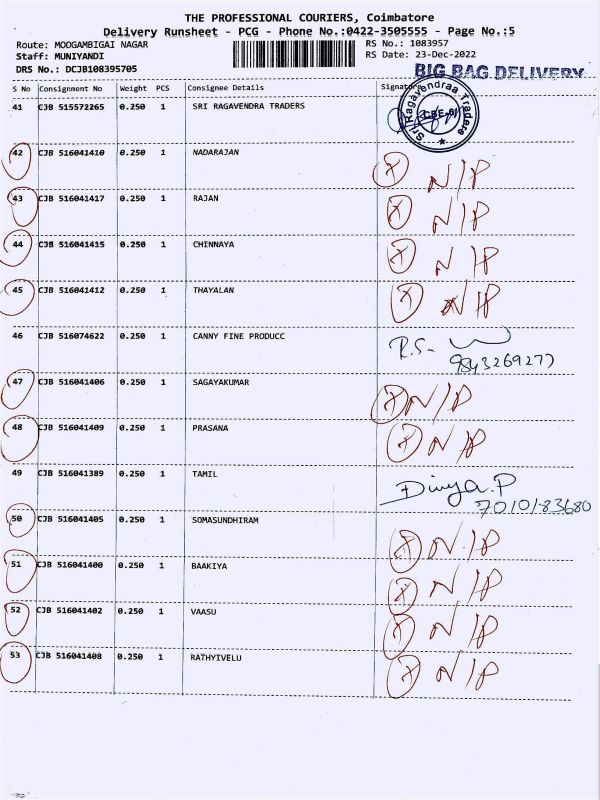 THE PROFESSIONAL COURIERS, Coimbatore
Delivery Runsheet - PCG - Phone No.:0422-3505555 - Page No.:5
Route: MOOGAMBIGAI NAGAR RS No.: 1083957
Staff: MUNIYANDI RS Date: 23-Dec-2022
DRS No.: DCJB108395705 BIG BAG DELIVERY
S No Consignment No Weight PCS Consignee Details Signature
41 CJB 515572265 0.250 1 SRI RAGAVENDRA TRADERS
Sri Ragavendraa Traders
42 CJB 516041410 0.250 1 NADARAJAN X N/P
43 CJB 516041417 0.250 1 RAJAN X N/P
44 CJB 516041415 0.250 1 CHINNAYA X N/P
45 CJB 516041412 0.250 1 THAYALAN X N/P
46 CJB 516074622 0.250 1 CANNY FINE PRODUCC R.S-
9843269277
47 CJB 516041406 0.250 1 SAGAYAKUMAR X N/P
48 CJB 516041409 0.250 1 PRASANA X N/P
49 CJB 516041389 0.250 1 TAMIL Divya.P
7010183680
50 CJB 516041405 0.250 1 SOMASUNDHIRAM X N/P
51 CJB 516041400 0.250 1 BAAKIYA X N/P
52 CJB 516041402 0.250 1 VAASU X N/P
53 CJB 516041408 0.250 1 RATHYIVELU X N/P